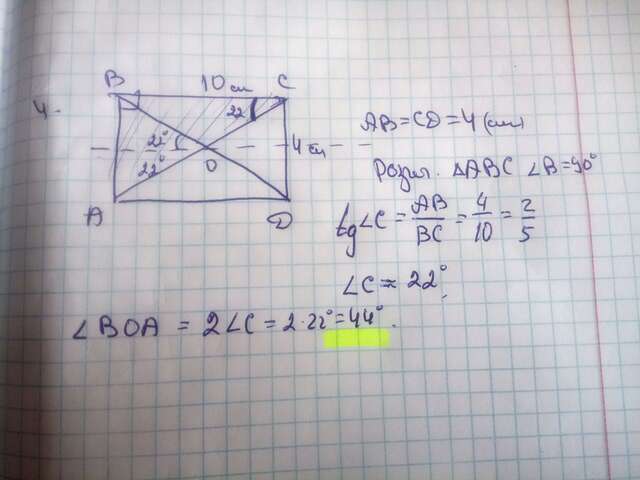 4.
B 10 см C
22°
22° O 4 см
22°
A D
AB = CD = 4 (см)
Розгл. △ABC ∠B = 90°
tg∠C = AB/BC = 4/10 = 2/5
∠C ≈ 22°.
∠BOA = 2∠C = 2·22° = 44°.